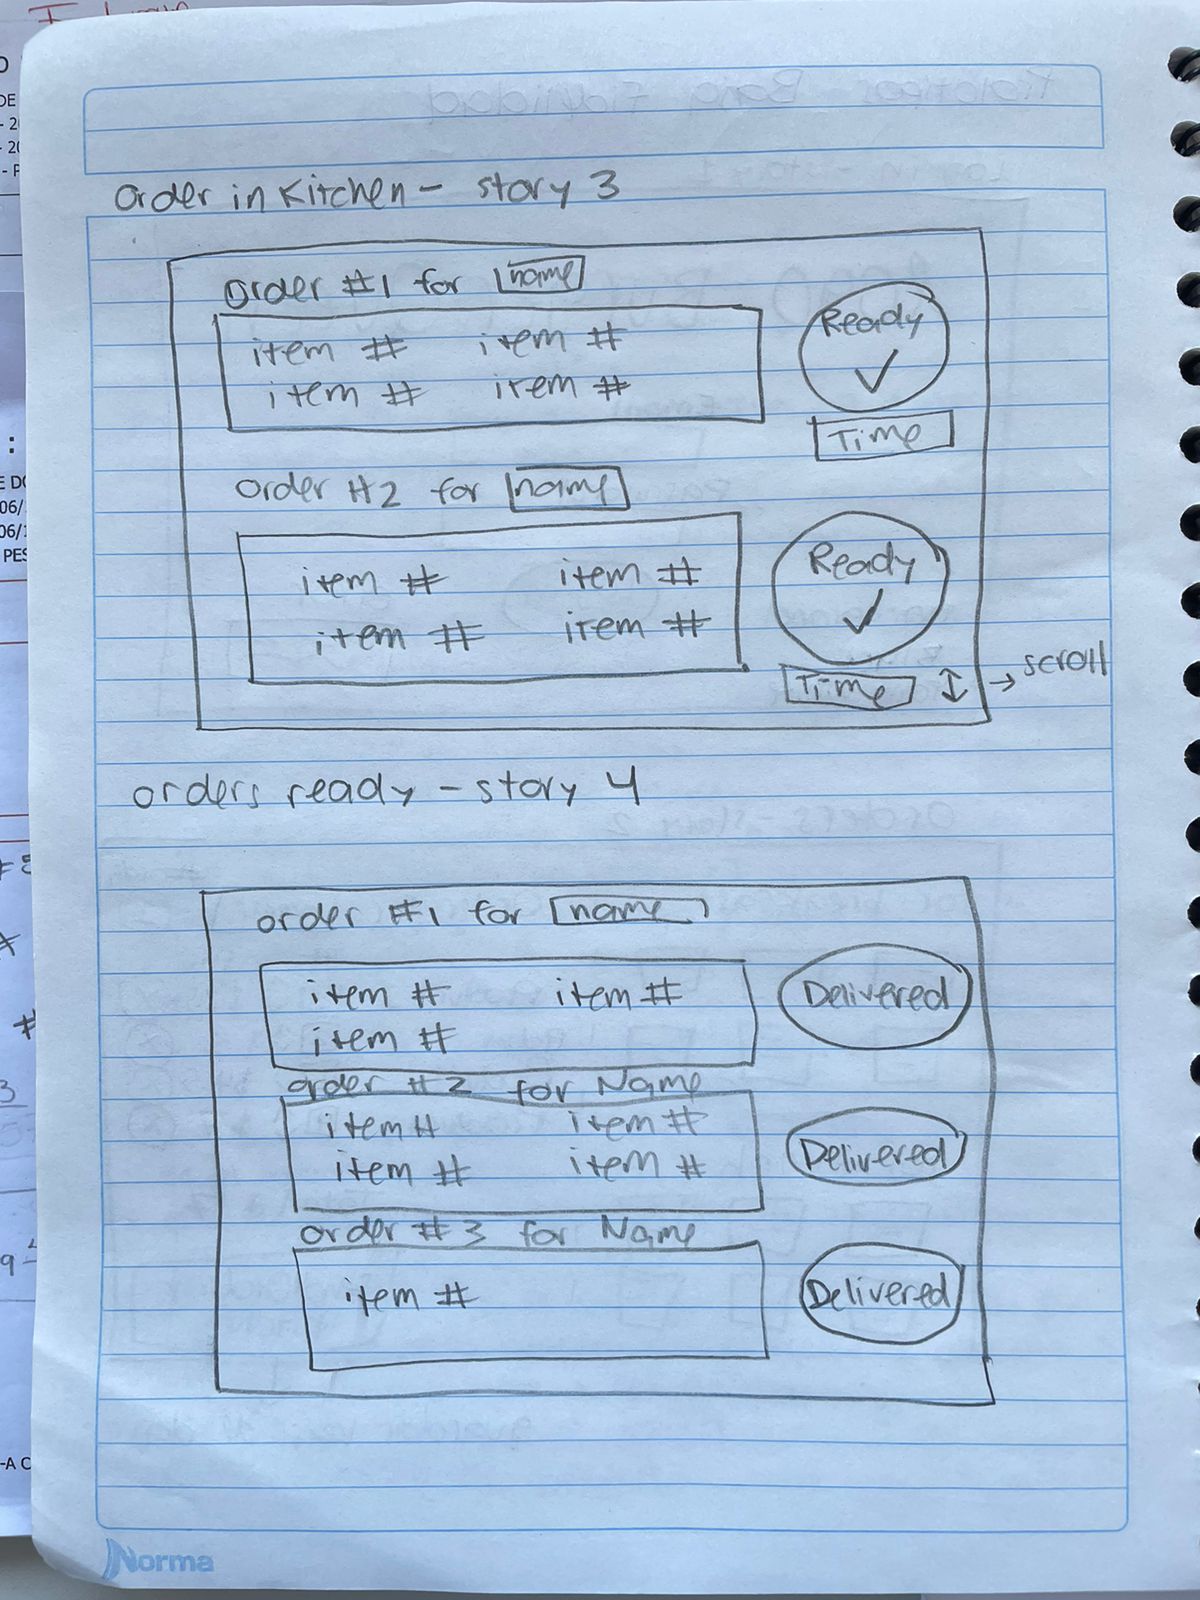 order in Kitchen - story 3
order #1 for name
item # item #
item # item #
Ready
✓
Time
order #2 for name
item # item #
item # item #
Ready
✓
Time ↕ → scroll
orders ready - story 4
order #1 for name
item # item #
item #
Delivered
order #2 for Name
item # item #
item # item #
Delivered
order #3 for Name
item #
Delivered
Norma